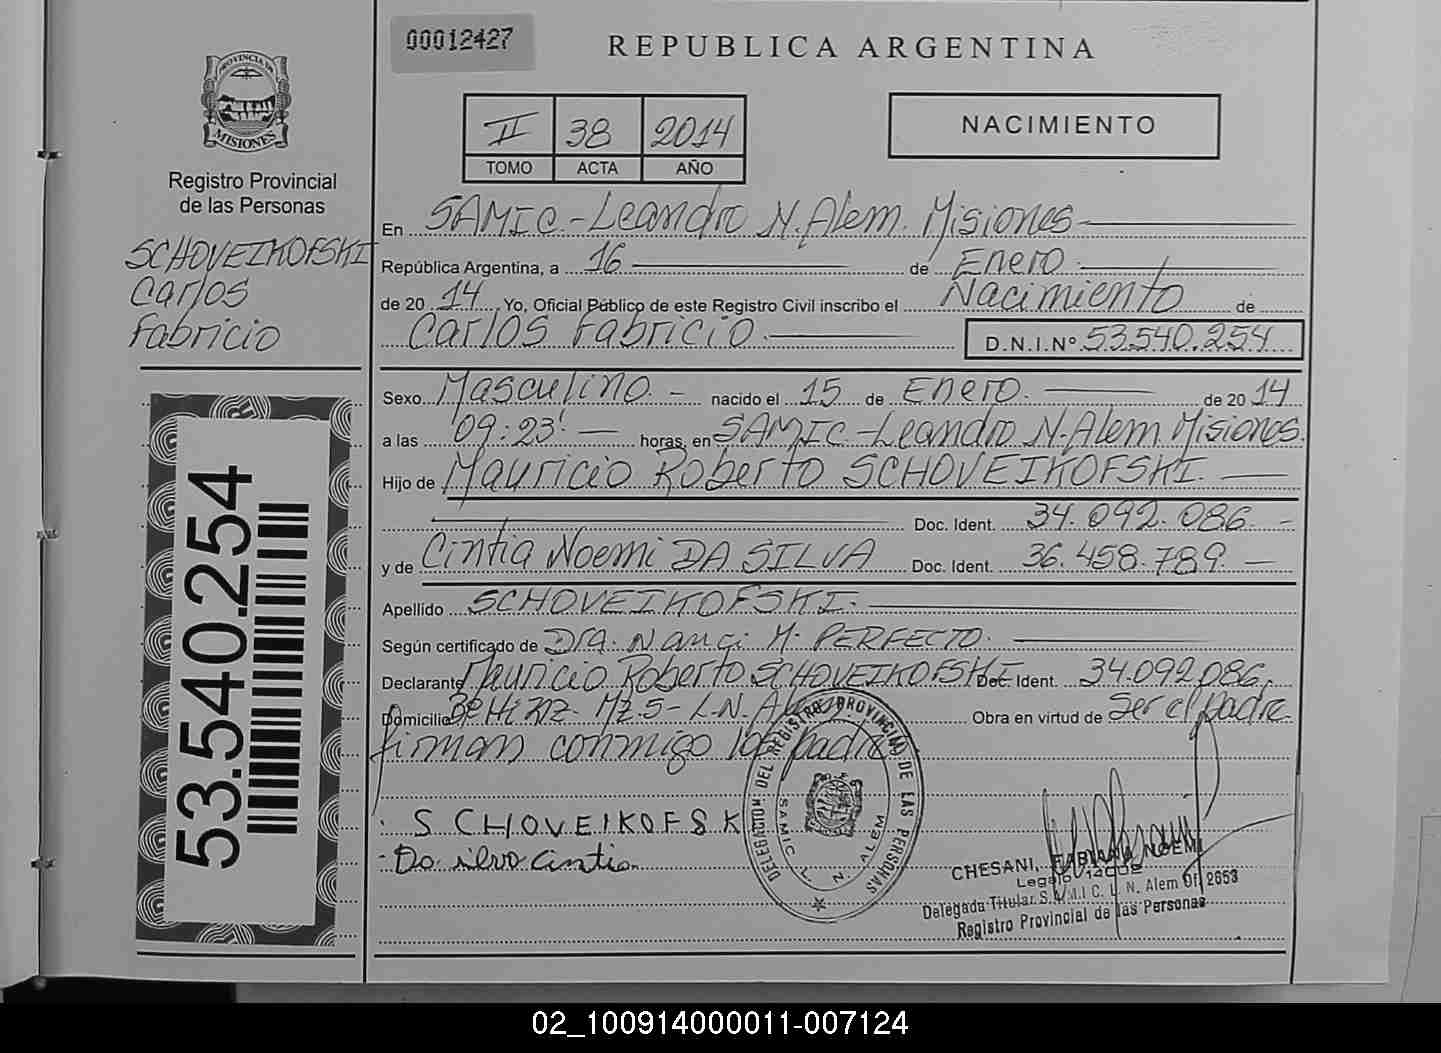 00012427
REPUBLICA ARGENTINA
PROVINCIA DE
MISIONES
Registro Provincial
de las Personas
SCHOVEIKOFSKI
Carlos
Fabricio
II 38 2014
TOMO ACTA AÑO
NACIMIENTO
En SAMIC-Leandro N. Alem. Misiones
República Argentina, a 16 de Enero
de 2014 Yo, Oficial Público de este Registro Civil inscribo el Nacimiento de
Carlos Fabricio D.N.I.N° 53.540.254
Sexo Masculino.- nacido el 15 de Enero. de 2014
a las 09:23' horas, en SAMIC-Leandro N. Alem Misiones.
Hijo de Mauricio Roberto SCHOVEIKOFSKI.
Doc. Ident. 34.092.086.-
y de Cintia Noemi DA SILVA Doc. Ident. 36.458.789.
Apellido SCHOVEIKOFSKI.
Según certificado de Dra. Nanci M. PERFECTO.
Declarante Mauricio Roberto SCHOVEIKOFSKI Doc. Ident. 34.092.086.
Domicilio Mz.5- L.N. Alem Obra en virtud de Ser el padre
firman conmigo los padres
SCHOVEIKOFSK
Da silva Cintia
DELEGACION DEL REGISTRO PROVINCIAL DE LAS PERSONAS
SAMIC L. N. ALEM
CHESANI, FABIANA NOEMI
Legajo
Delegada Titular S.A.M.I.C. L. N. Alem Of. 2653
Registro Provincial de las Personas
53.540.254
02_100914000011-007124